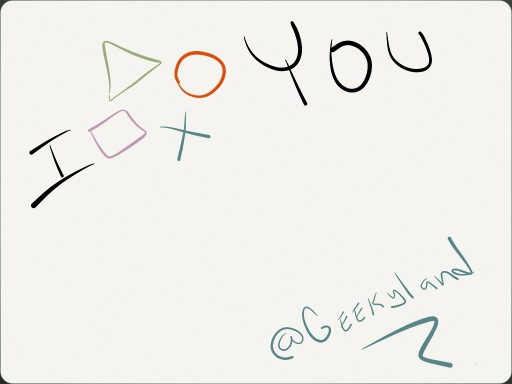 △○ YOU
I □×
@Geekyland